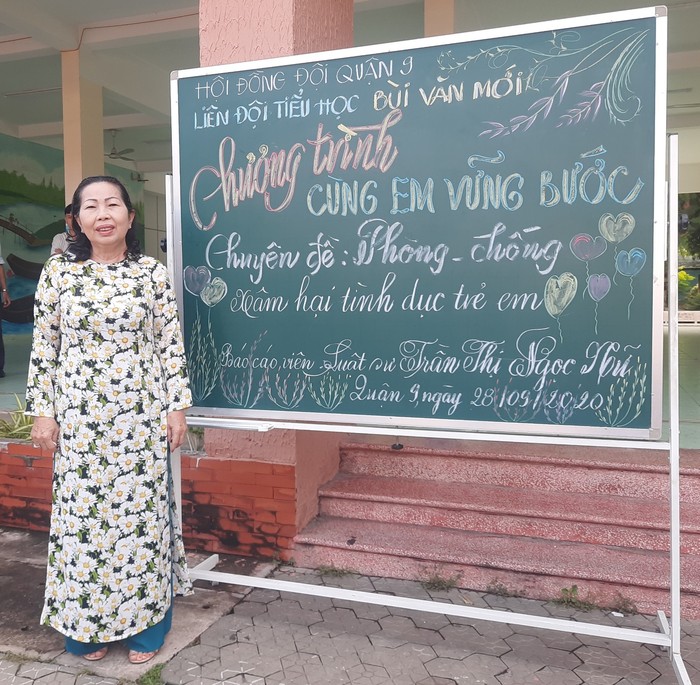 HỘI ĐỒNG ĐỘI QUẬN 9
LIÊN ĐỘI TIỂU HỌC BÙI VĂN MỚI
Chương trình
CÙNG EM VỮNG BƯỚC
Chuyên đề: Phòng - chống
Xâm hại tình dục trẻ em
Báo cáo viên Luật sư Trần Thị Ngọc Nữ
Quận 9, ngày 28/09/2020